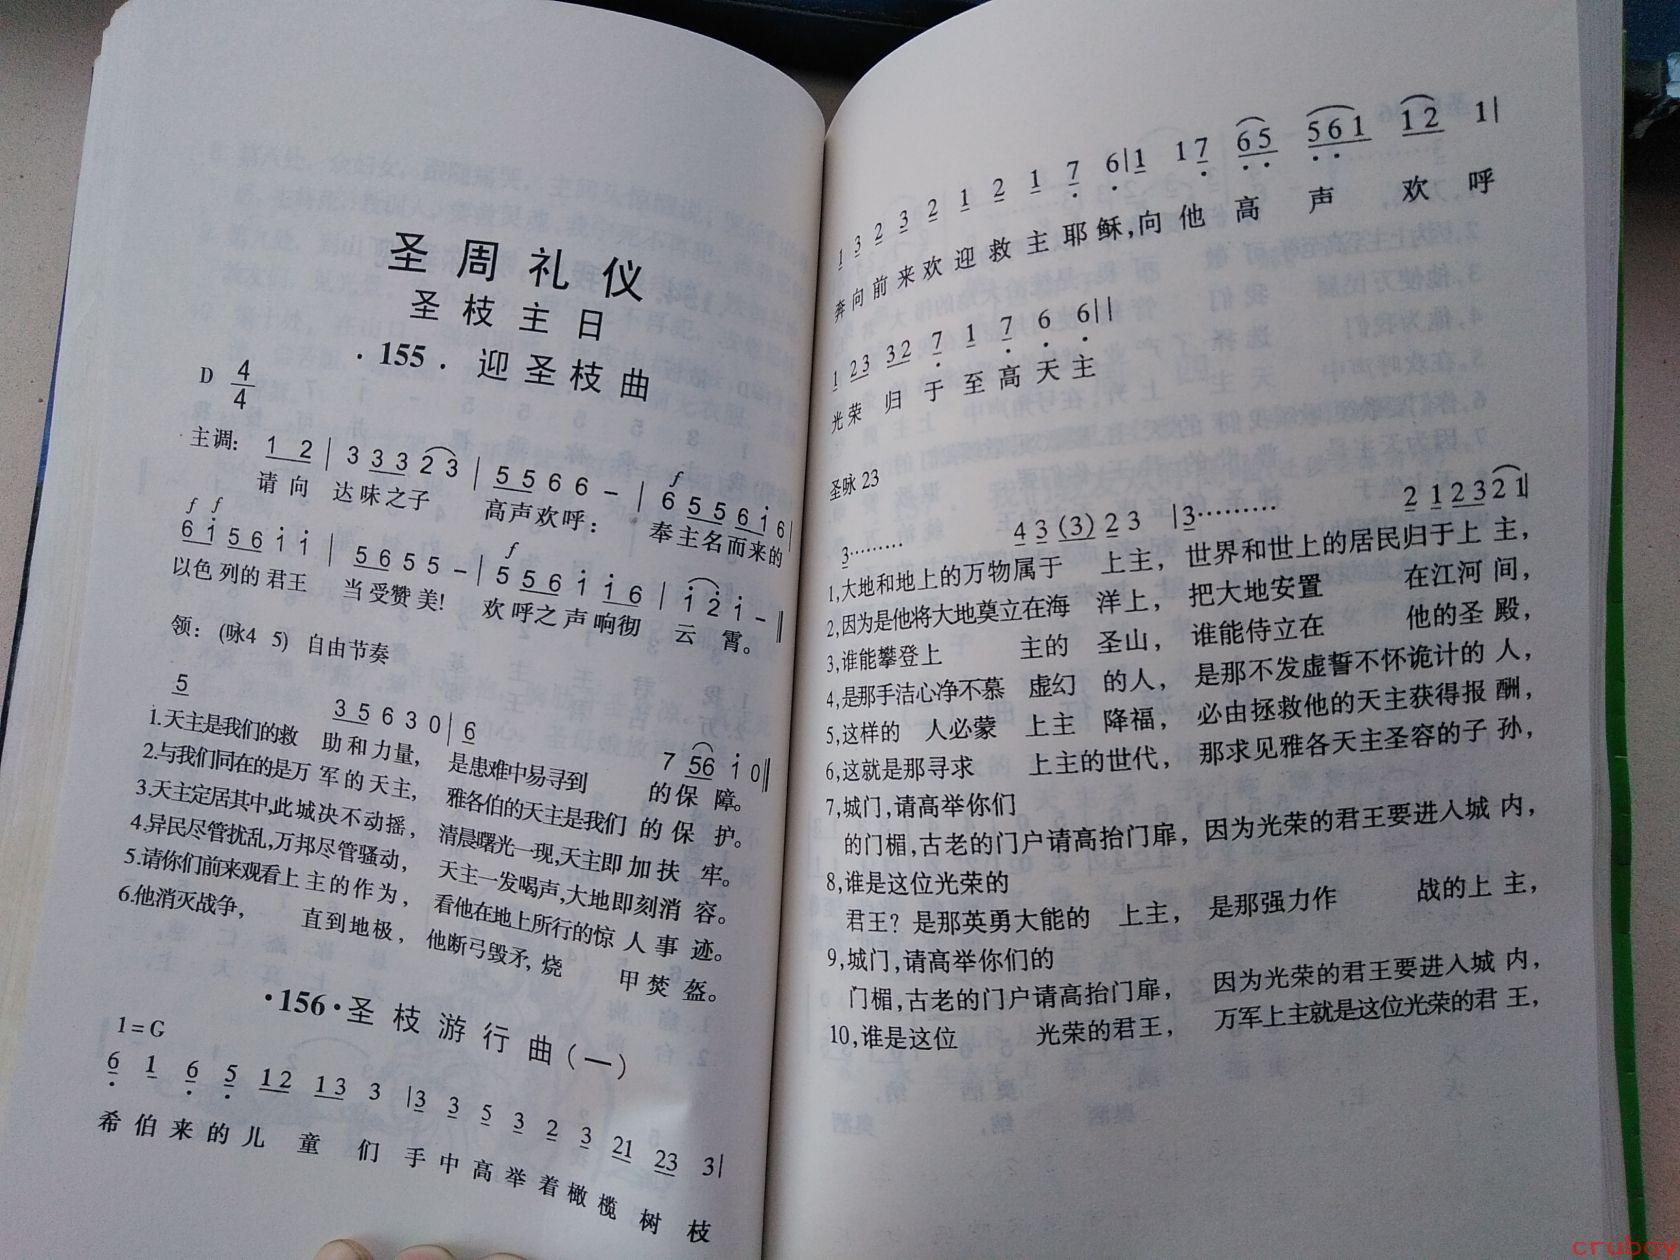 圣周礼仪
圣枝主日
·155. 迎圣枝曲
D 4/4
主调: 1 2 | 3 3 3 2 3 | 5 5 6 6 - | 6 5 5 6 i 6 |
请向 达味之子 高声欢呼: 奉主名而来的
f f f
6 i 5 6 i i | 5 6 5 5 - | 5 5 6 i i i 6 | i 2 i - ‖
以色列的君王 当受赞美! 欢呼之声响彻 云霄。
领: (咏4 5) 自由节奏
5 3 5 6 3 0 | 6 7 56 i 0 ‖
1.天主是我们的救 助和力量, 是患难中易寻到 的保障。
2.与我们同在的是万军的天主, 雅各伯的天主是我们的保护。
3.天主定居其中,此城决不动摇, 清晨曙光一现,天主即加扶牢。
4.异民尽管扰乱,万邦尽管骚动, 天主一发喝声,大地即刻消容。
5.请你们前来观看上主的作为, 看他在地上所行的惊人事迹。
6.他消灭战争, 直到地极, 他断弓毁矛,烧 甲焚盔。
·156·圣枝游行曲(一)
1=G
6 1 6 5 12 13 3 | 3 3 5 3 2 3 21 23 3 |
希伯来的儿童们手中高举着橄榄树枝
1 3 2 3 2 1 2 1 7 6 | 1 1 7 65 561 12 1 |
奔向前来欢迎救主耶稣,向他高声欢呼
1 23 32 7 1 7 6 6 ‖
光荣归于至高天主
圣咏 23
3········· 4 3 (3) 2 3 | 3········· 2 1 2 3 2 1 |
1,大地和地上的万物属于 上主, 世界和世上的居民归于上主,
2,因为是他将大地奠立在海 洋上, 把大地安置 在江河间,
3,谁能攀登上 主的 圣山, 谁能侍立在 他的圣殿,
4,是那手洁心净不慕 虚幻 的人, 是那不发虚誓不怀诡计的人,
5,这样的 人必蒙 上主 降福, 必由拯救他的天主获得报酬,
6,这就是那寻求 上主的世代, 那求见雅各天主圣容的子孙,
7,城门,请高举你们
的门楣,古老的门户请高抬门扉, 因为光荣的君王要进入城内,
8,谁是这位光荣的
君王? 是那英勇大能的 上主, 是那强力作 战的上主,
9,城门,请高举你们的
门楣,古老的门户请高抬门扉, 因为光荣的君王要进入城内,
10,谁是这位 光荣的君王, 万军上主就是这位光荣的君王,
cruboy